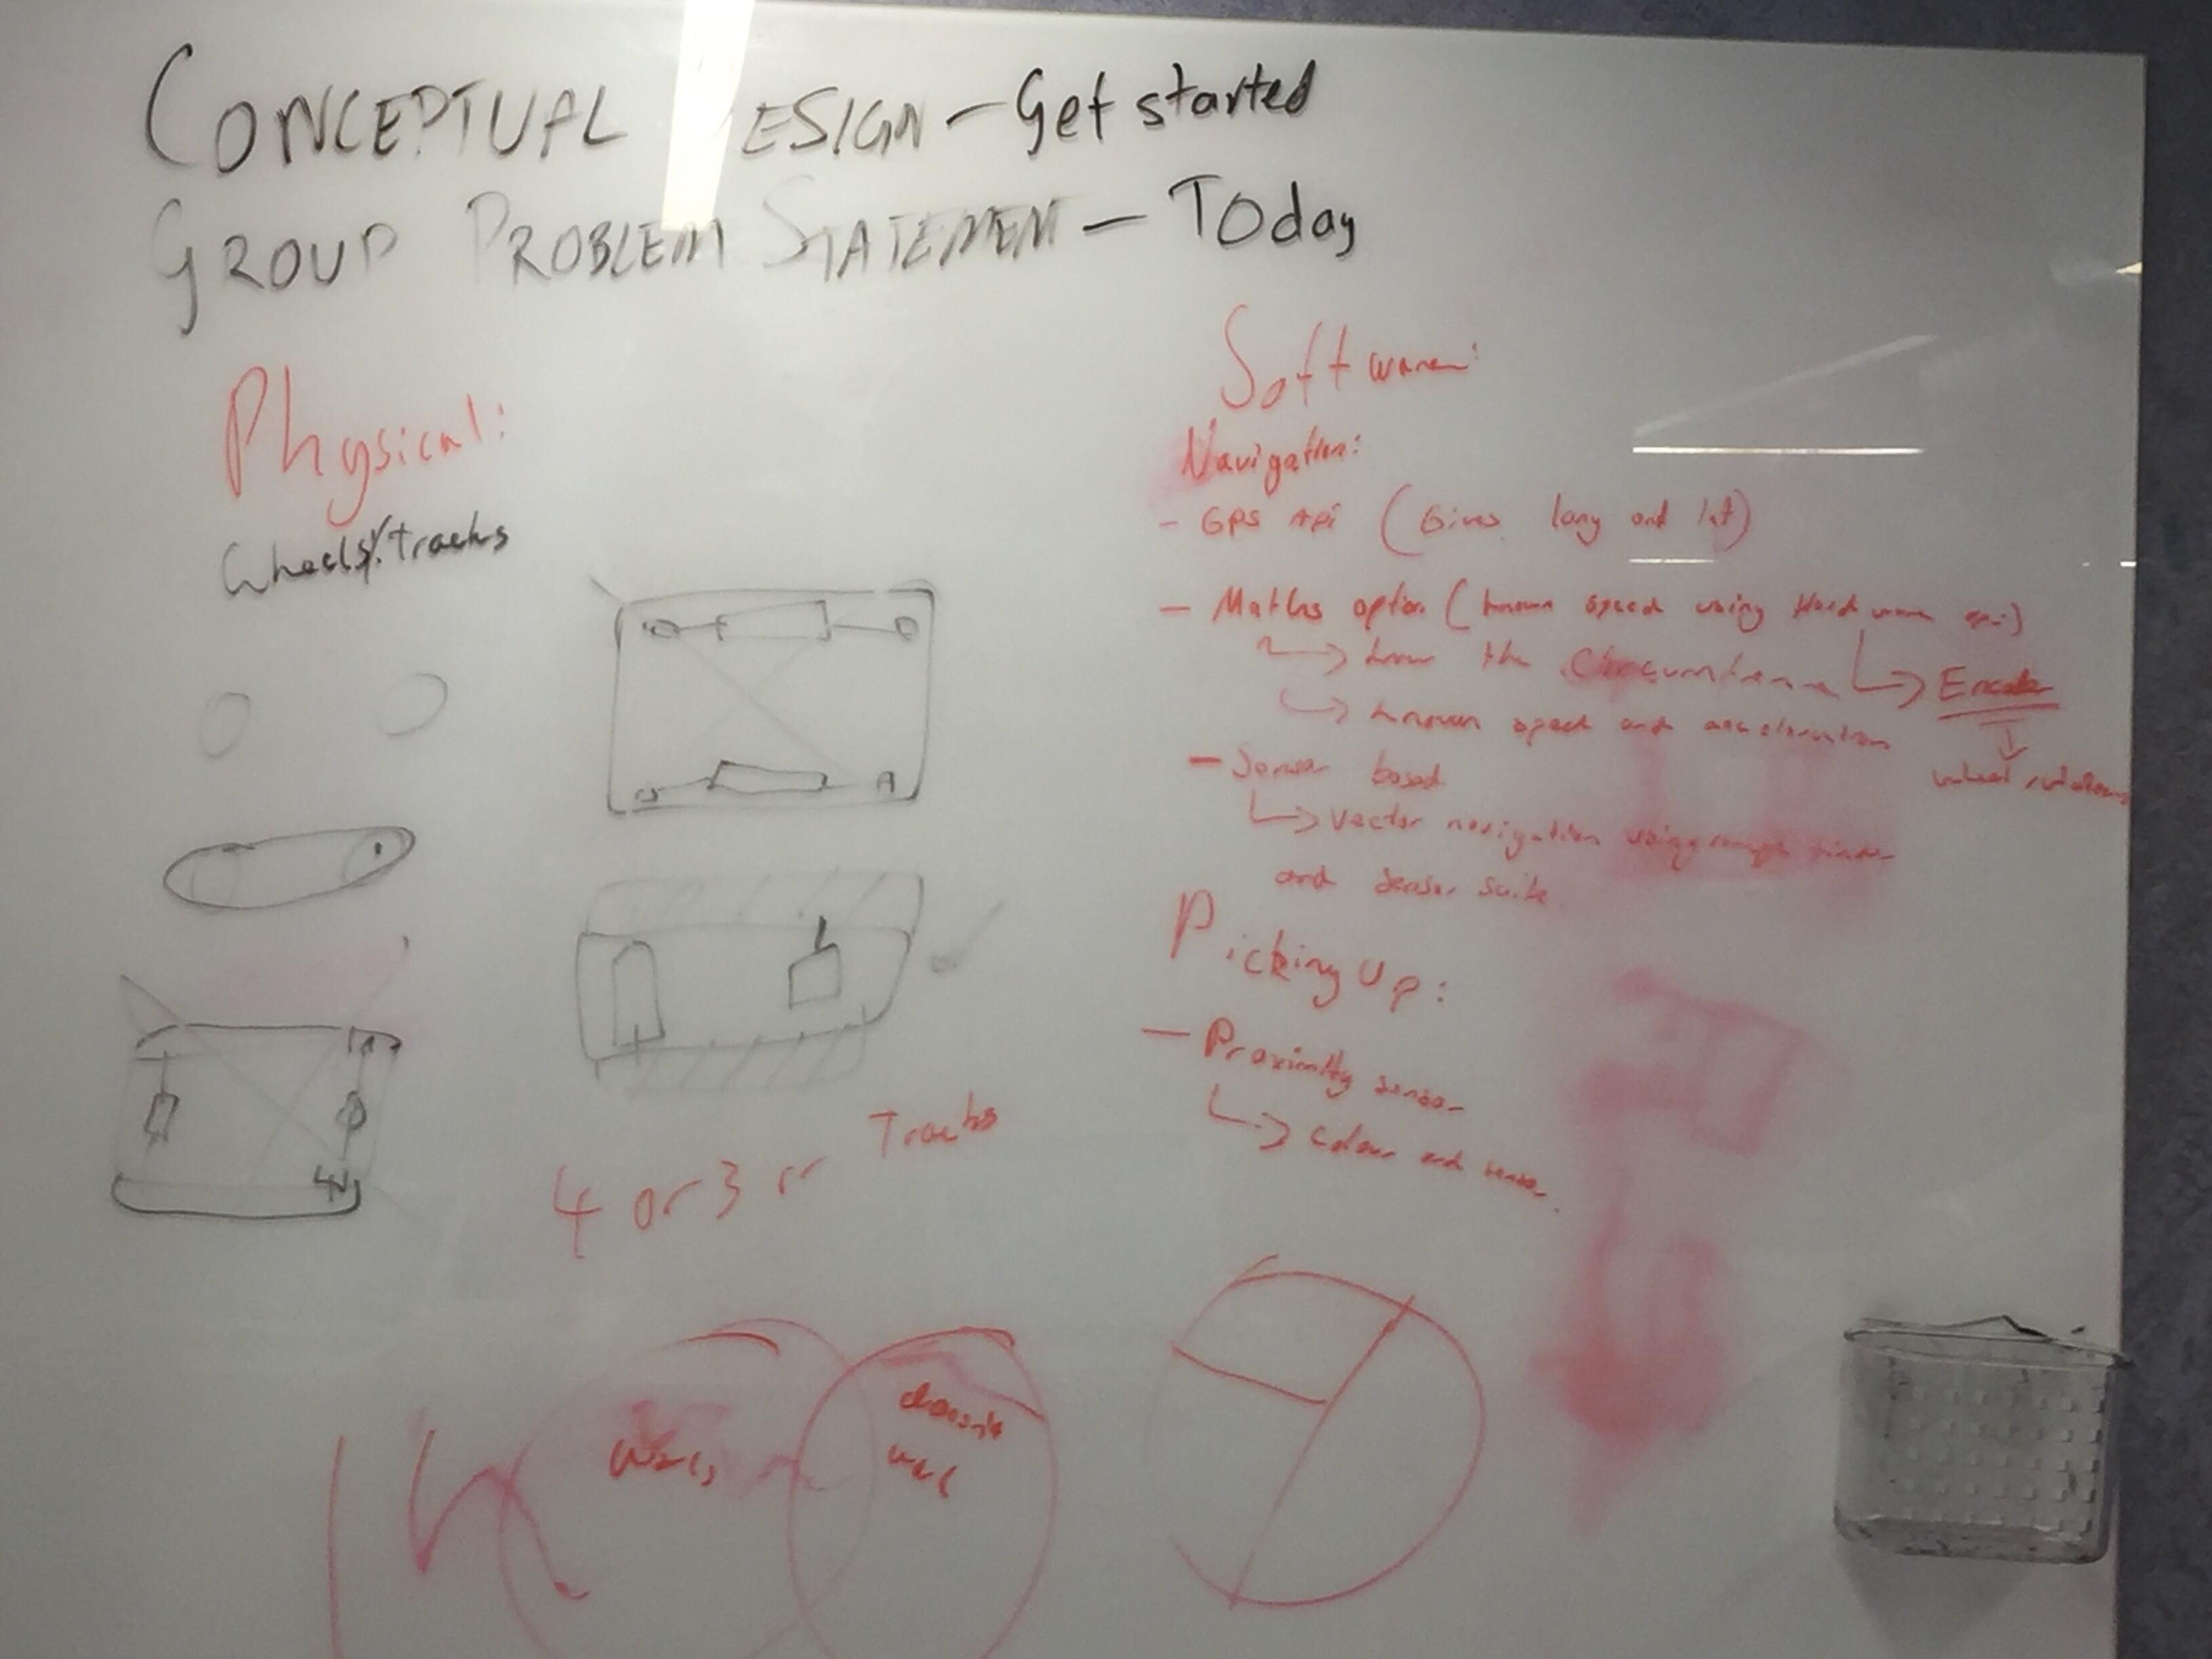 CONCEPTUAL ESIGN - Get started
GROUP PROBLEM STATEMENT - TOday
Physical:
Wheels/Tracks
4 or 3 or Tracks
Software:
Navigation:
- GPS Api (Gives long and lat)
- Maths option (known speed using Hardware api)
→ know the Circumference → Encoder
→ known speed and acceleration
→ wheel rotations
- Sonar based
→ vector navigation using range finder
and sensor suite
Picking Up:
- Proximity sensor
→ Colour and
works
doesn't
work